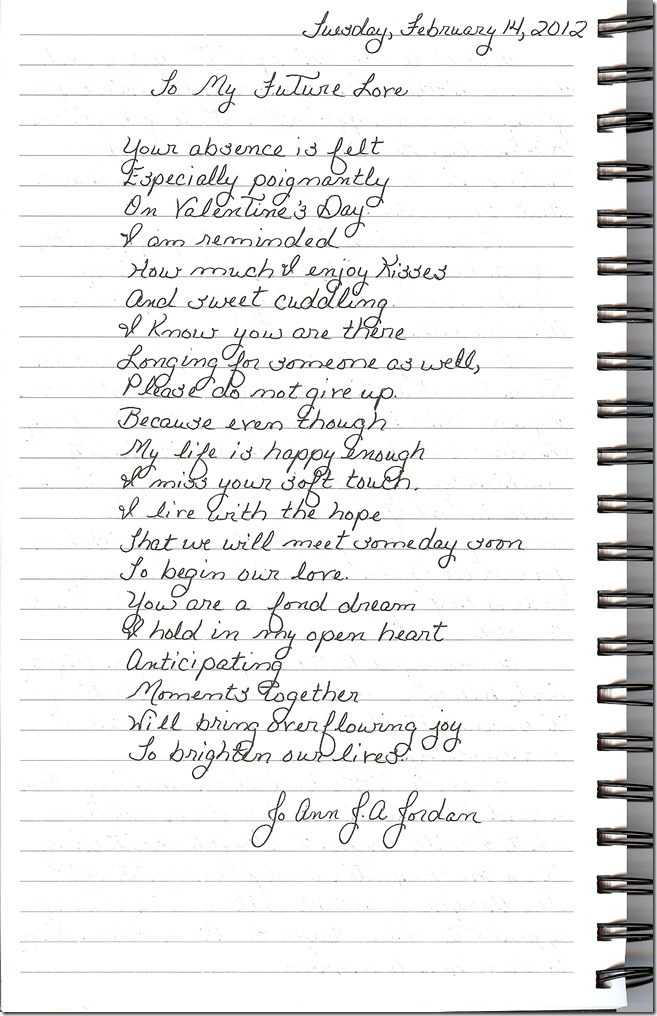 Tuesday, February 14, 2012
To My Future Love
Your absence is felt
Especially poignantly
On Valentine's Day.
I am reminded
How much I enjoy Kisses
And sweet cuddling.
I Know you are there
Longing for someone as well,
Please do not give up.
Because even though
My life is happy enough
I miss your soft touch.
I live with the hope
That we will meet someday soon
To begin our love.
You are a fond dream
I hold in my open heart
Anticipating
Moments together
Will bring overflowing joy
To brighten our lives.
Jo Ann J. A. Jordan